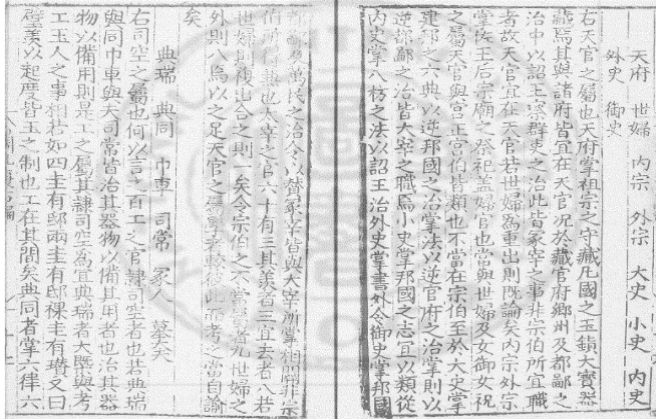 天府 世婦 内宗 外宗 大史 小史 内史
外史 御史
右天官之屬也天府掌祖宗之守藏凡國之玉鎮大寶器
藏焉其與諸府皆宜在天官况於藏官府鄉州及都鄙之
治中以詔王察群吏之治此皆冢宰之事非宗伯所宜職
者故天官宜在天官若世婦為重出則既論矣内宗外宗
掌佐王后宗廟之祭祀盖婦官也當與世婦及女御女祝
之屬天官與宫正宫伯皆類也不當在宗伯至於大史掌
建邦之六典以逆邦國之治掌法以逆官府之治掌則以
逆都鄙之治皆大宰之職焉小史掌邦國之志宜以類從
内史掌八枋之法以詔王治外史掌書外令御史掌邦國
都鄙及萬民之治令以贊冢宰皆與大宰所掌相關非宗
伯所與也大宰之官六十有三其羨者三宜去者八若
世婦則複出合之則一矣今宗伯之不當屬者九世婦之
外則八焉以之足天官之屬
矣
典瑞 典同 巾車 司常 冢人 墓夫
右司空之屬也何以言之百工之官隷司空者也若典瑞
與同巾車與夫司常皆治其器物以備其用者也治其器
物以備用則是工之屬其隷司空為宜典瑞者大槩與考
工玉人之事相若如四圭有邸兩圭有邸祼圭有瓚又曰
璧羨以起度皆玉之制也工在其間矣典同者掌六律六